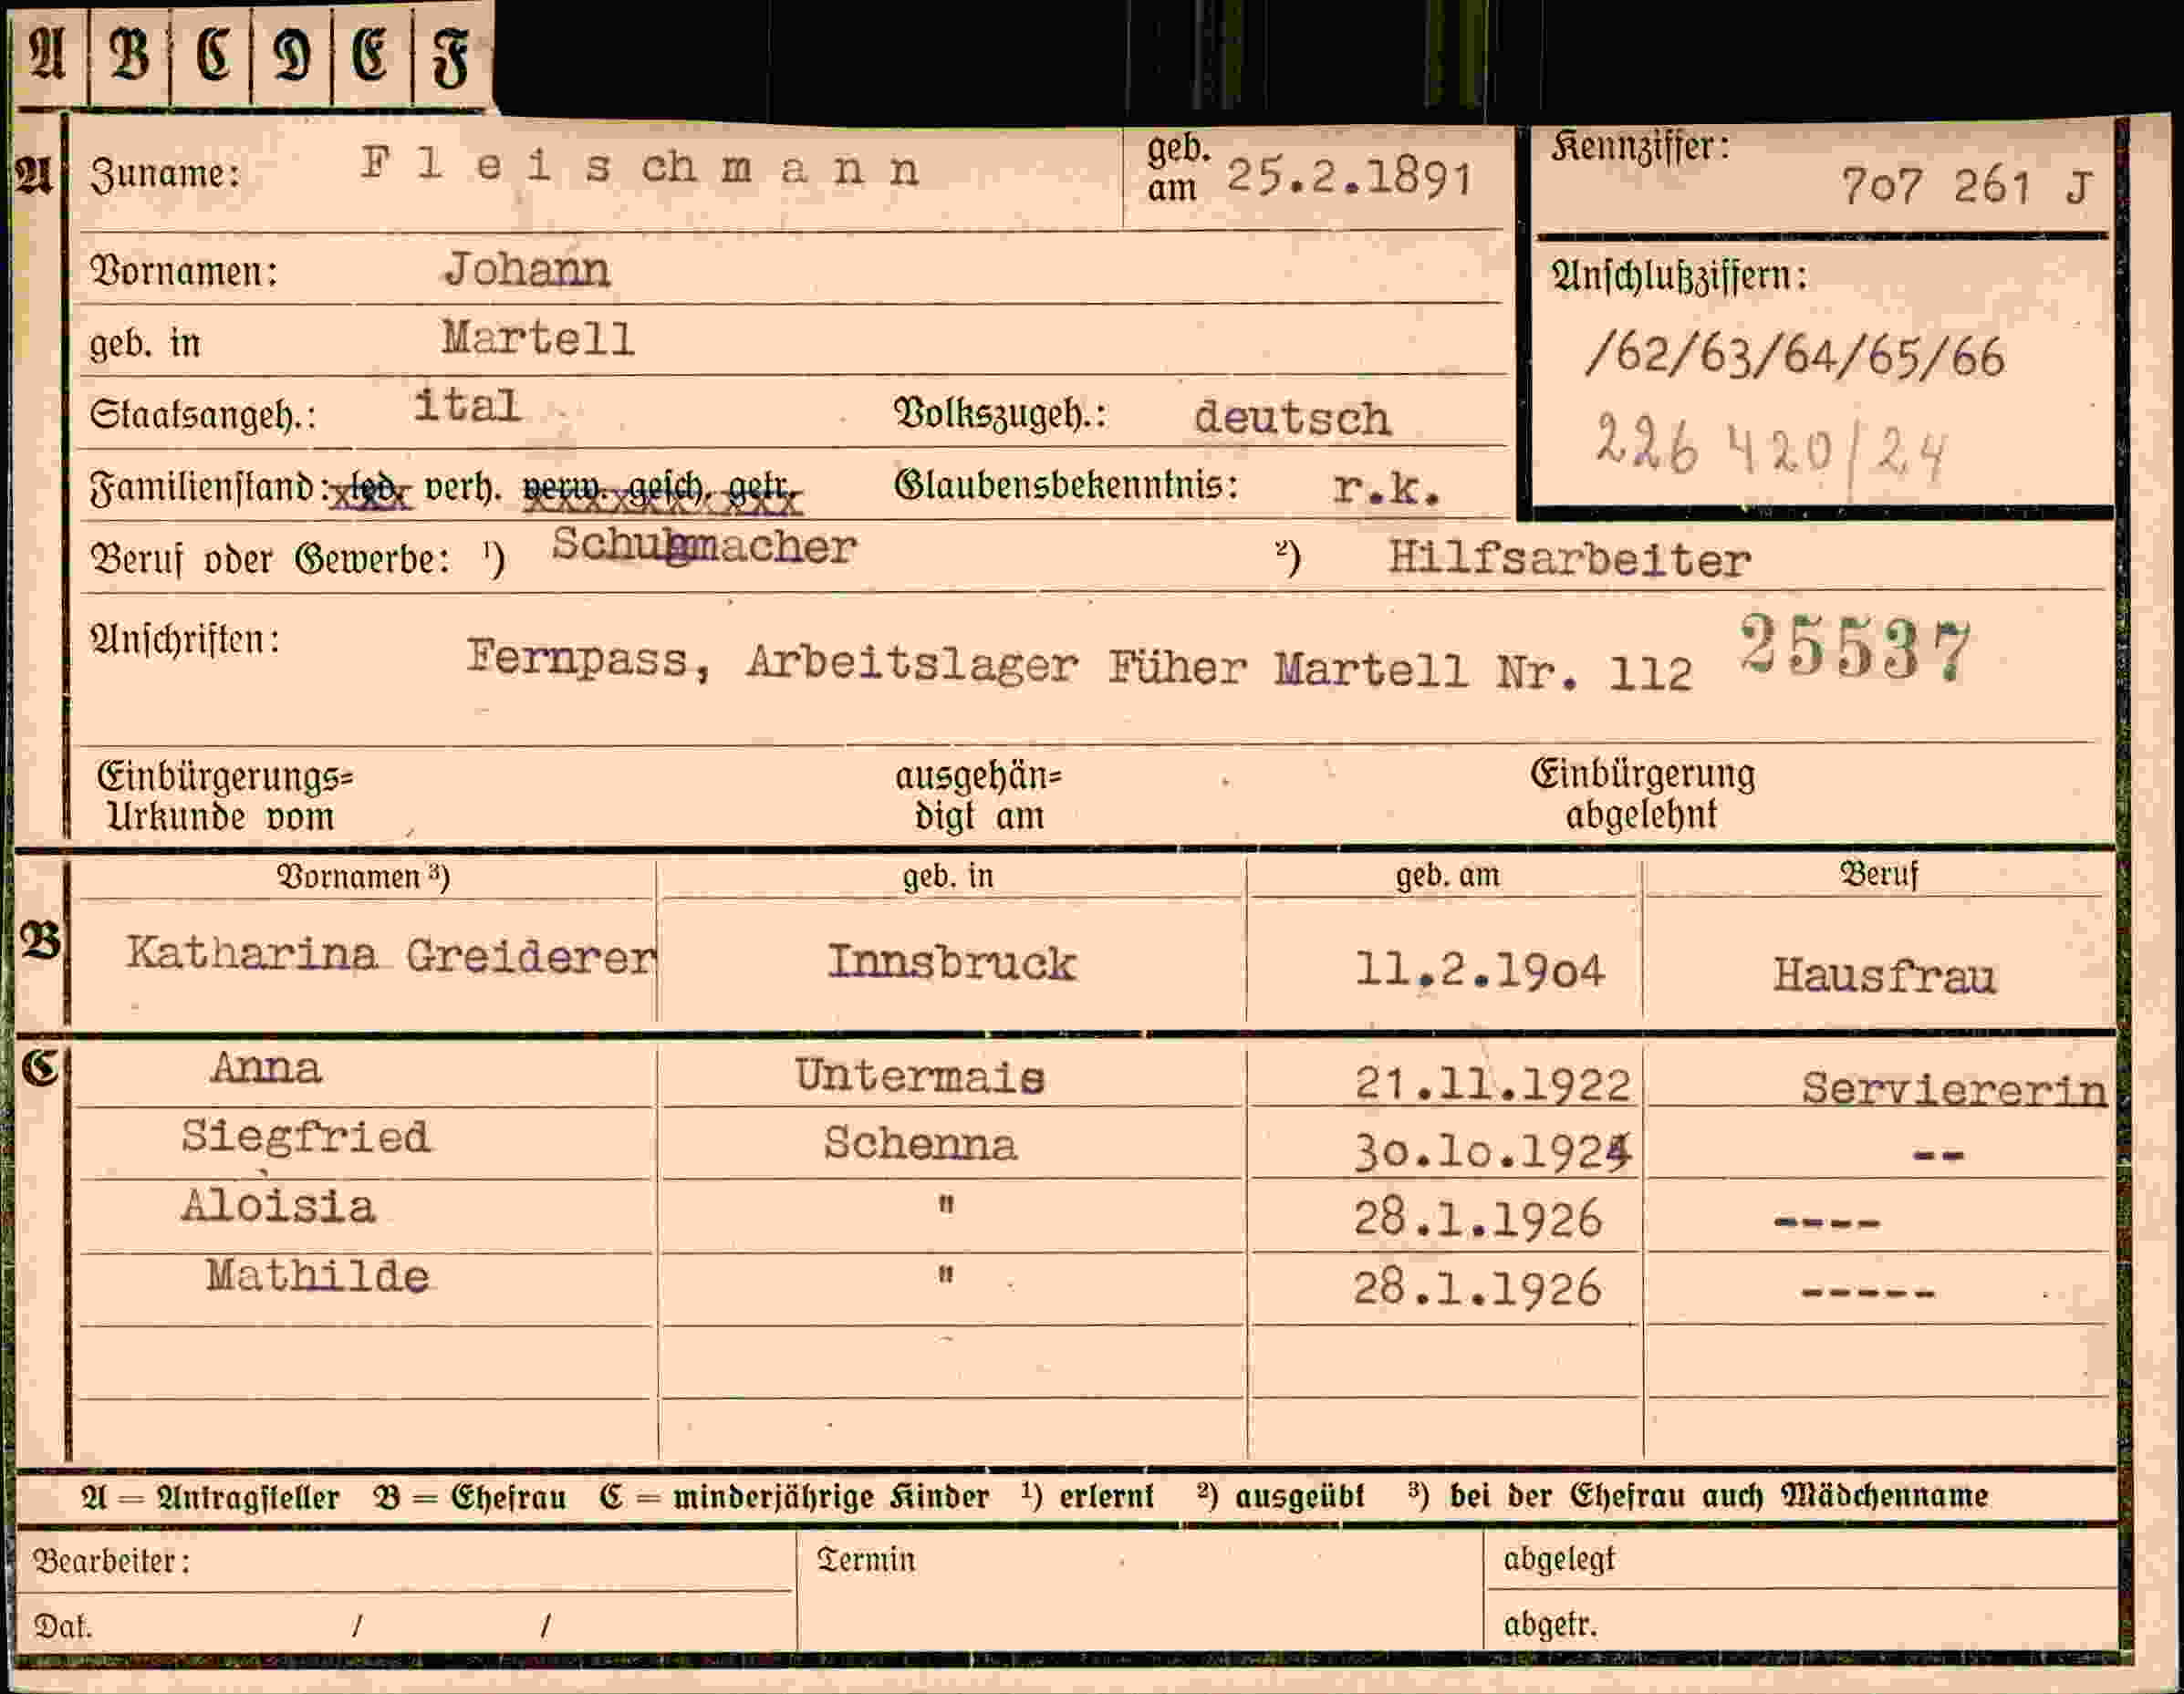 A B C D E F
A Zuname: Fleischmann geb. am 25.2.1891 Kennziffer: 7o7 261 J
Vornamen: Johann Anschlußziffern:
geb. in Martell /62/63/64/65/66
Staatsangeh.: ital Volkszugeh.: deutsch 226 420/24
Familienstand: led. verh. verw. gesch. getr. Glaubensbekenntnis: r.k.
Beruf oder Gewerbe: ¹) Schuhmacher ²) Hilfsarbeiter
Anschriften: Fernpass, Arbeitslager Füher Martell Nr. 112 25537
Einbürgerungs= ausgehän= Einbürgerung
Urkunde vom digt am abgelehnt
Vornamen ³) geb. in geb. am Beruf
B Katharina Greiderer Innsbruck 11.2.19o4 Hausfrau
C Anna Untermais 21.11.1922 Serviererin
Siegfried Schenna 3o.1o.1924 --
Aloisia " 28.1.1926 ----
Mathilde " 28.1.1926 -----
A = Antragsteller B = Ehefrau C = minderjährige Kinder ¹) erlernt ²) ausgeübt ³) bei der Ehefrau auch Mädchenname
Bearbeiter: Termin abgelegt
Dat. / / abgetr.